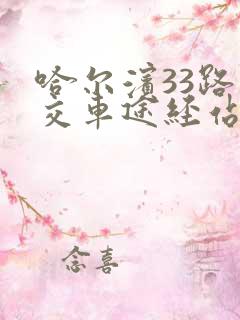 哈尔滨33路
交车途经佔
念喜